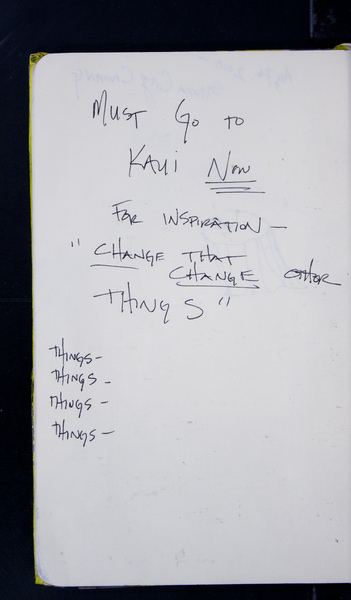 MUST GO TO
KAUI NOW
FOR INSPIRATION —
"CHANGE THAT
CHANGE OTHER
THINGS"
THINGS —
THINGS —
THINGS —
THINGS —